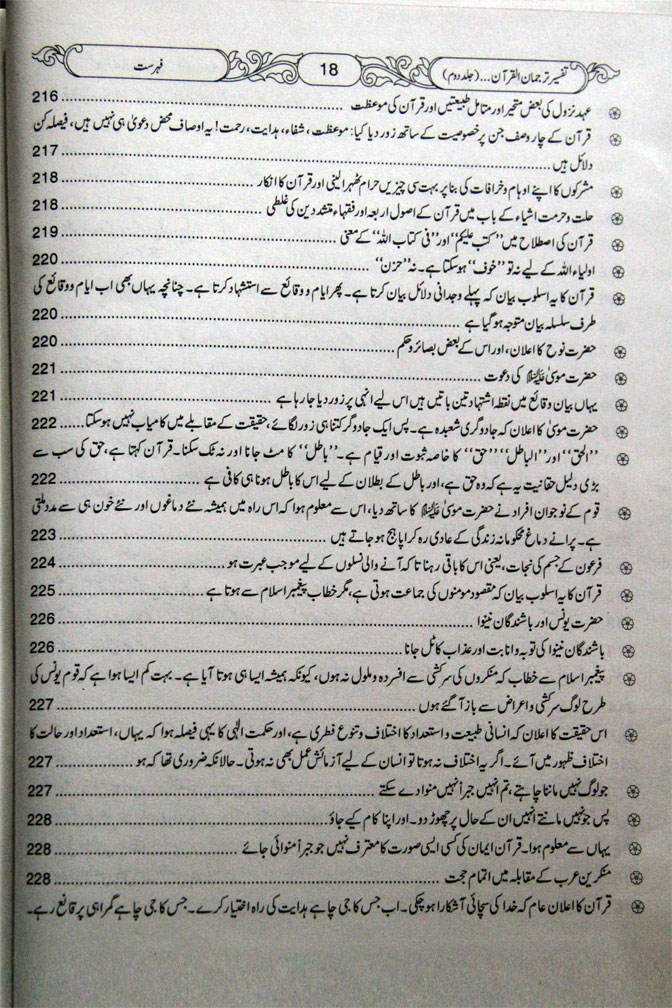 تفسیر ترجمان القرآن...(جلد دوم) 18 فہرست
عہد نزول کی بعض متحیر اور متامل طبیعتیں اور قرآن کی موعظت 216
قرآن کے چار وصف جن پر خصوصیت کے ساتھ زور دیا گیا: موعظت، شفاء، ہدایت، رحمت! یہ اوصاف محض دعویٰ ہی نہیں ہیں، فیصلہ کن
دلائل ہیں 217
مشرکوں کا اپنے اوہام و خرافات کی بنا پر بہت سی چیزیں حرام ٹھہرا لینی اور قرآن کا انکار 218
حلت و حرمت اشیاء کے باب میں قرآن کے اصول اربعہ اور فقہاء متشددین کی غلطی 218
قرآن کی اصطلاح میں "کتب علیکم" اور "فی کتاب اللہ" کے معنی 219
اولیاء اللہ کے لیے نہ تو "خوف" ہو سکتا ہے۔ نہ "حزن" 220
قرآن کا یہ اسلوب بیان کہ پہلے وجدانی دلائل بیان کرتا ہے۔ پھر ایام و وقائع سے استشہاد کرتا ہے۔ چنانچہ یہاں بھی اب ایام و وقائع کی
طرف سلسلہ بیان متوجہ ہو گیا ہے 220
حضرت نوح کا اعلان، اور اس کے بعض بصائر و حکم 220
حضرت موسیٰ علیہ السلام کی دعوت 221
یہاں بیان وقائع میں نقطہ استشہاد تین باتیں ہیں اس لیے انہی پر زور دیا جا رہا ہے 221
حضرت موسیٰ کا اعلان کہ جادوگری شعبدہ ہے۔ پس ایک جادوگر کتنا ہی زور لگائے، حقیقت کے مقابلے میں کامیاب نہیں ہو سکتا 222
"الحق" اور "الباطل" "حق" کا خاصہ ثبوت اور قیام ہے۔ "باطل" کا مٹ جانا اور نہ ٹک سکنا۔ قرآن کہتا ہے، حق کی سب سے
بڑی دلیل حقانیت یہ ہے کہ وہ حق ہے، اور باطل کے بطلان کے لیے اس کا باطل ہونا ہی کافی ہے 222
قوم کے نوجوان افراد نے حضرت موسیٰ علیہ السلام کا ساتھ دیا، اس سے معلوم ہوا کہ اس راہ میں ہمیشہ نئے دماغوں اور نئے خون ہی سے مدد ملتی
ہے۔ پرانے دماغ محکومانہ زندگی کے عادی رہ کر اپاہج ہو جاتے ہیں 223
فرعون کے جسم کی نجات، یعنی اس کا باقی رہنا تاکہ آنے والی نسلوں کے لیے موجب عبرت ہو 224
قرآن کا یہ اسلوب بیان کہ مقصود مومنوں کی جماعت ہوتی ہے، مگر خطاب پیغمبر اسلام سے ہوتا ہے 225
حضرت یونس اور باشندگان نینوا 226
باشندگان نینوا کی توبہ و انابت اور عذاب کا ٹل جانا 226
پیغمبر اسلام سے خطاب کہ منکروں کی سرکشی سے افسردہ و ملول نہ ہوں، کیونکہ ہمیشہ ایسا ہی ہوتا آیا ہے۔ بہت کم ایسا ہوا ہے کہ قوم یونس کی
طرح لوگ سرکشی و اعراض سے باز آ گئے ہوں 227
اس حقیقت کا اعلان کہ انسانی طبیعت و استعداد کا اختلاف و تنوع فطری ہے، اور حکمت الٰہی کا یہی فیصلہ ہوا کہ یہاں، استعداد اور حالت کا
اختلاف ظہور میں آئے۔ اگر یہ اختلاف نہ ہوتا تو انسان کے لیے آزمائش عمل بھی نہ ہوتی۔ حالانکہ ضروری تھا کہ ہو 227
جو لوگ نہیں ماننا چاہتے، تم انہیں جبراً نہیں منوا دے سکتے 227
پس جو نہیں مانتے انہیں ان کے حال پر چھوڑ دو۔ اور اپنا کام کیے جاؤ 228
یہاں سے معلوم ہوا۔ قرآن ایمان کی کسی ایسی صورت کا معترف نہیں جو جبراً منوائی جائے 228
منکرین عرب کے مقابلہ میں اتمام حجت 228
قرآن کا اعلان عام کہ خدا کی سچائی آشکارا ہو چکی۔ اب جس کا جی چاہے ہدایت کی راہ اختیار کرے۔ جس کا جی چاہے گمراہی پر قانع رہے۔